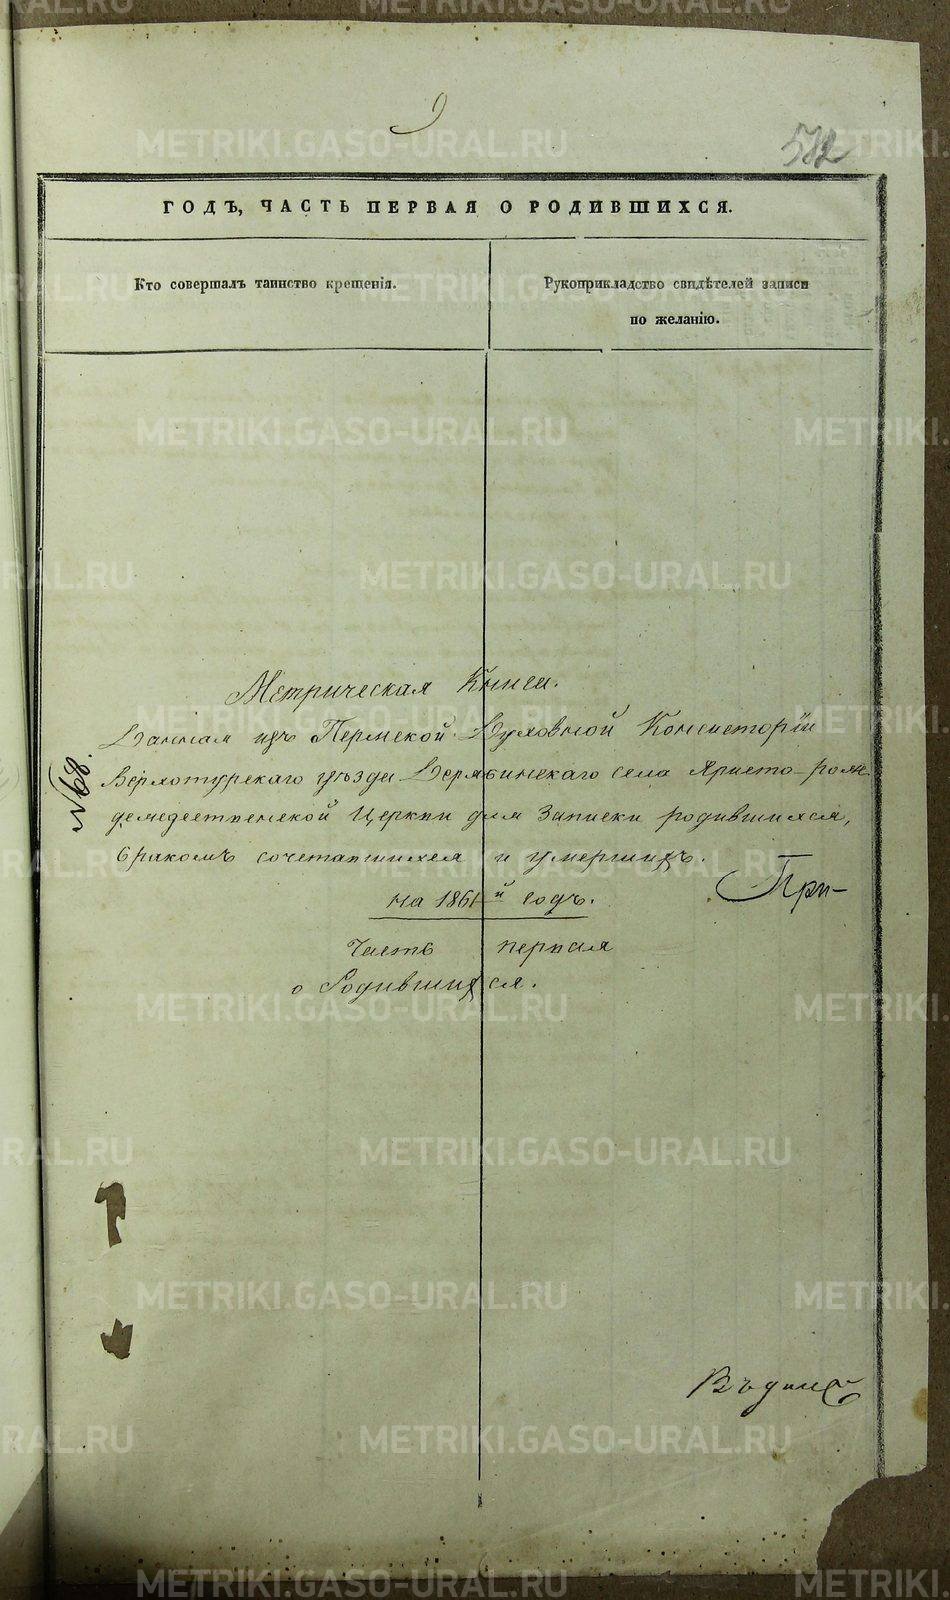 9
582
ГОДЪ, ЧАСТЬ ПЕРВАЯ О РОДИВШИХСЯ.
Кто совершалъ таинство крещенія.
Рукоприкладство свидѣтелей записи
по желанію.
Метрическая Книга.
Данная изъ Пермской Духовной Консисторіи
№ 68.
Верхотурскаго уѣзда Дерябинскаго села Христо-рож
дественской Церкви для записки родившихся,
бракомъ сочетавшихся и умершихъ.
При-
на 1861й годъ.
Часть первая
о Родившихся.
METRIKI.GASO-URAL.RU